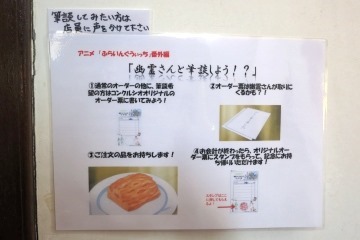 筆談してみたい方は
店員に声をかけて下さい
アニメ「ふらいんぐうぃっち」番外編
「幽霊さんと筆談しよう！？」
①通常のオーダーの他に、筆談希
望の方はコンクルシオオリジナルの
オーダー票に書いてみよう！
②オーダー票は幽霊さんが取りに
くるかも？！
③ご注文の品をお持ちします！
④お会計が終わったら、オリジナルオー
ダー票にスタンプをもらって、記念にお持
ち帰りいただけます！